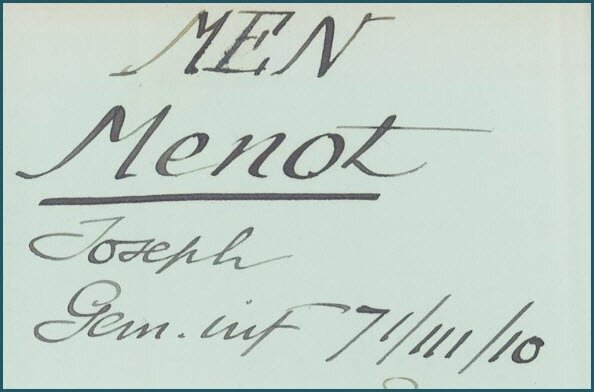 MEN
Menot
Joseph
Gem. inf 71/III/10